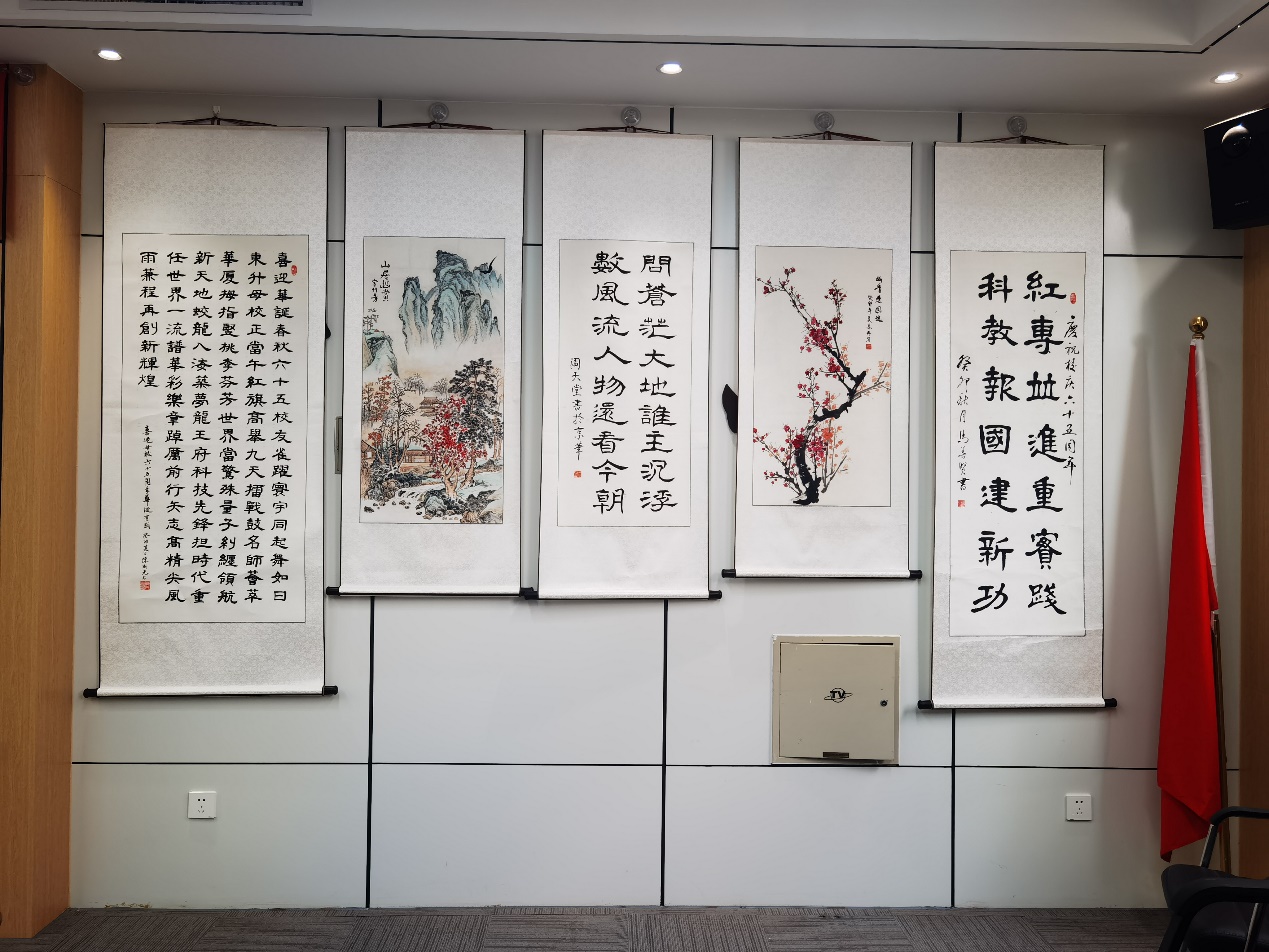 庆祝校庆六十五周年
紅專並進重實踐
科教報國建新功
癸卯秋月馬善賢書
問蒼茫大地誰主沉浮
數風流人物還看今朝
周天堂書於京華
喜迎華誕春秋六十五校友雀躍寰宇同起舞如日
東升母校正當午紅旗高舉九天擂戰鼓名師薈萃
華厦拇指竪桃李芬芳世界當驚殊量子糾纏領航
新天地蛟龍入海築夢龍王府科技先鋒担時代重
任世界一流譜華彩樂章踔厲前行矢志高精尖風
雨兼程再創新輝煌
TV